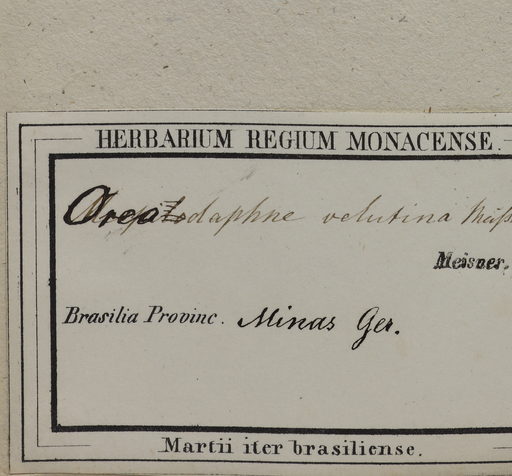 HERBARIUM REGIUM MONACENSE.
Oreodaphne velutina
Meisner.
Brasilia Provinc. Minas Ger.
Martii iter brasiliense.